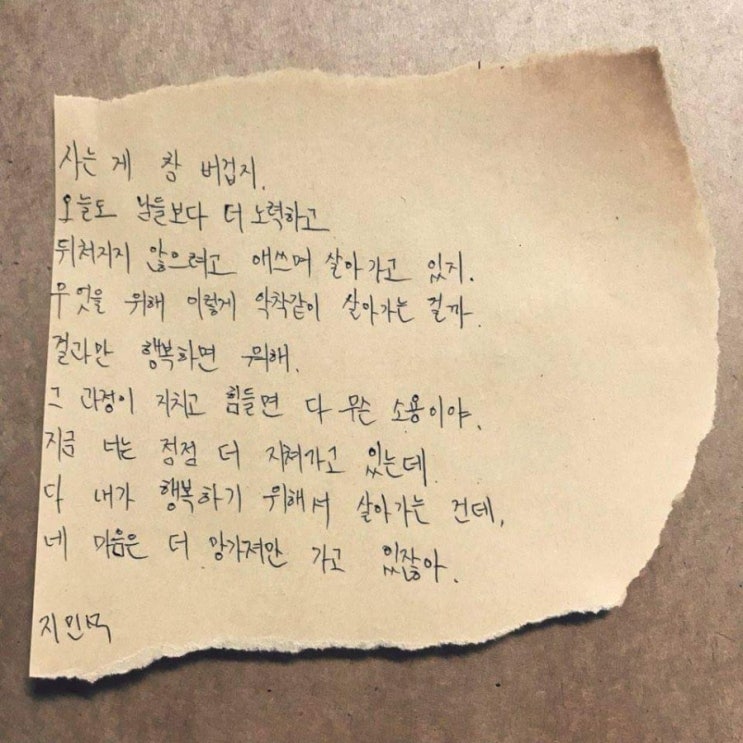 사는 게 참 버겁지.
오늘도 남들보다 더 노력하고
뒤처지지 않으려고 애쓰며 살아가고 있지.
무엇을 위해 이렇게 악착같이 살아가는 걸까.
결과만 행복하면 뭐해.
그 과정이 지치고 힘들면 다 무슨 소용이야.
지금 너는 점점 더 지쳐가고 있는데
다 내가 행복하기 위해서 살아가는 건데,
네 마음은 더 망가져만 가고 있잖아.
지민석